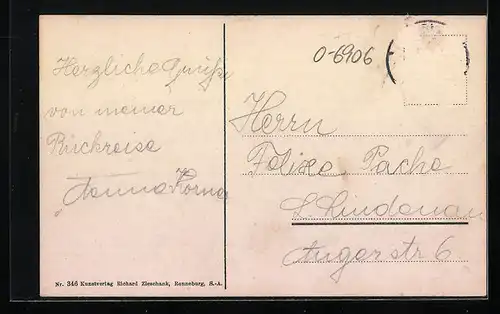 Herzliche Grüße
von meiner
Rückreise
Korna
O-6906
Herrn
Felix Pache
L. Lindenau
Angerstr 6
Nr. 346 Kunstverlag Richard Zieschank, Ronneburg, S.-A.